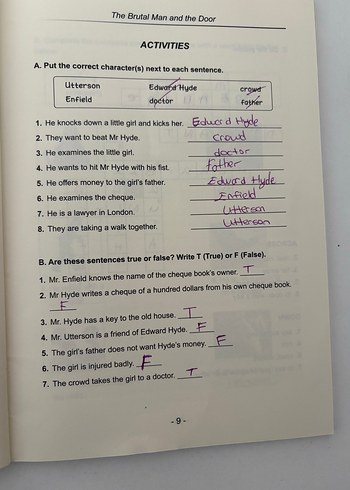 The Brutal Man and the Door
ACTIVITIES
A. Put the correct character(s) next to each sentence.
Utterson Edward Hyde crowd
Enfield doctor father
1. He knocks down a little girl and kicks her. Edward Hyde
2. They want to beat Mr Hyde. crowd
3. He examines the little girl. doctor
4. He wants to hit Mr Hyde with his fist. father
5. He offers money to the girl's father. Edward Hyde
6. He examines the cheque. Enfield
7. He is a lawyer in London. Utterson
8. They are taking a walk together. Utterson
B. Are these sentences true or false? Write T (True) or F (False).
1. Mr. Enfield knows the name of the cheque book's owner. T
2. Mr Hyde writes a cheque of a hundred dollars from his own cheque book.
F
3. Mr. Hyde has a key to the old house. T
4. Mr. Utterson is a friend of Edward Hyde. F
5. The girl's father does not want Hyde's money. F
6. The girl is injured badly. F
7. The crowd takes the girl to a doctor. T
- 9 -